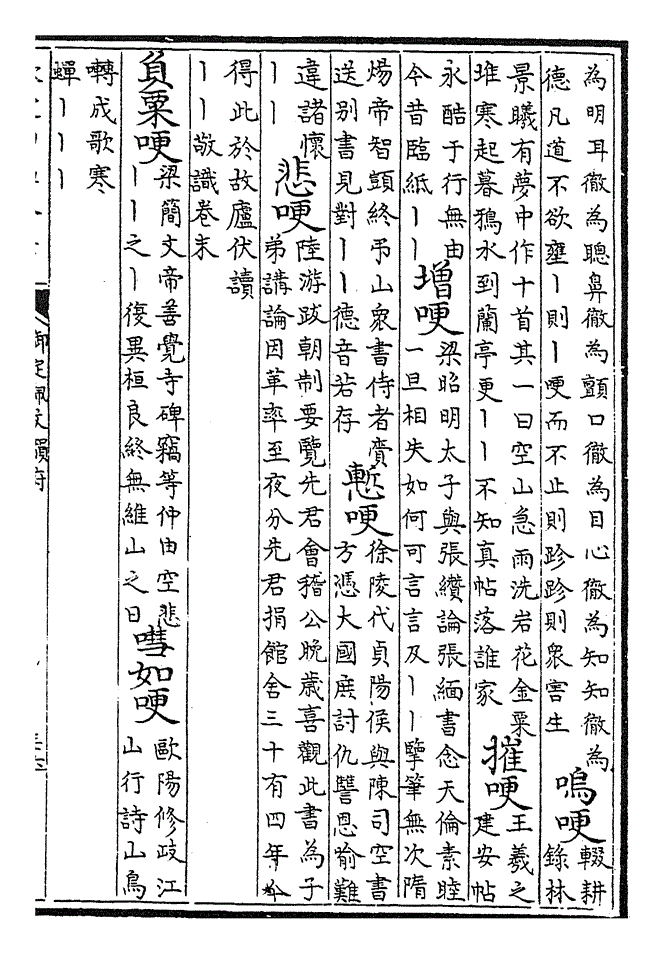 為明耳徹為聰鼻徹為顫口徹為目心徹為知知徹為
德凡道不欲壅丨則丨哽而不止則跈跈則衆害生
嗚哽
輟耕
錄林
景曦有夢中作十首其一曰空山急雨洗岩花金粟
堆寒起暮鴉水到蘭亭更丨丨不知真帖落誰家
摧哽
王羲之
建安帖
永酷于行無由
今昔臨紙丨丨
增哽
梁昭明太子與張纘論張緬書念天倫素睦
一旦相失如何可言言及丨丨擥筆無次隋
煬帝智顗終弔山衆書侍者賫
送別書見對丨丨德音若存
慙哽
徐陵代貞陽侯與陳司空書
方憑大國展討仇讐恩喻難
違諸懷
丨丨
悲哽
陸游跋朝制要覽先君會稽公晚歲喜觀此書為子
弟講論因革率至夜分先君捐館舍三十有四年今
得此於故廬伏讀
丨丨敬識卷末
負粟哽
梁簡文帝善覺寺碑竊等仲由空悲
丨丨之丨復異桓良終無維山之日
嘒如哽
歐陽修岐江
山行詩山鳥
囀成歌寒
蟬丨丨丨
御定佩文韻府